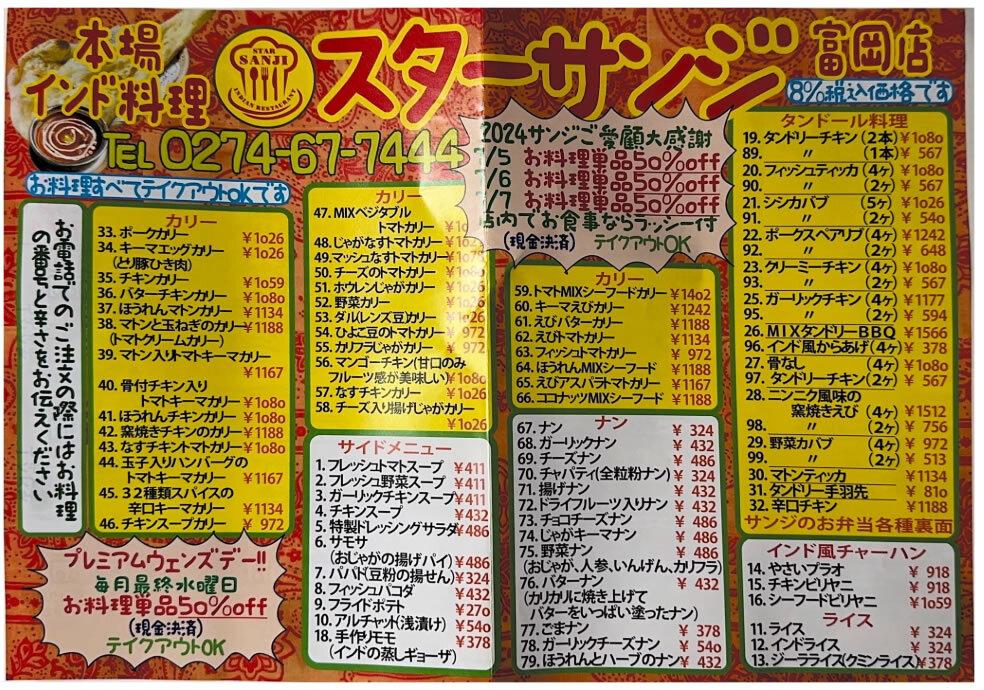 本場
インド料理
STAR
SANJI
INDIAN RESTAURANT
スターサンジ
富岡店
TEL 0274-67-7444
8%税込価格です
お料理すべてテイクアウトOKです
お電話でのご注文の際にはお料理
の番号と辛さをお伝えください
カリー
33. ポークカリー ¥1026
34. キーマエッグカリー ¥1026
(とり豚ひき肉)
35. チキンカリー ¥1059
36. バターチキンカリー ¥1080
37. ほうれんマトンカリー ¥1134
38. マトンと玉ねぎのカリー ¥1188
(トマトクリームカリー)
39. マトン入りトマトキーマカリー
¥1167
40. 骨付チキン入り
トマトキーマカリー ¥1080
41. ほうれんチキンカリー ¥1080
42. 窯焼きチキンのカリー ¥1188
43. なすチキントマトカリー ¥1080
44. 玉子入りハンバーグの
トマトキーマカリー ¥1167
45. 32種類スパイスの
辛口キーマカリー ¥1134
46. チキンスープカリー ¥ 972
プレミアムウェンズデー!!
毎月最終水曜日
お料理単品50%off
(現金決済)
テイクアウトOK
カリー
47. MIXベジタブル
トマトカリー
48. じゃがなすトマトカリー
49. マッシュなすトマトカリー
50. チーズのトマトカリー
51. ホウレンじゃがカリー ¥1026
52. 野菜カリー ¥1026
53. ダル(レンズ豆)カリー ¥1026
54. ひよこ豆のトマトカリー ¥ 972
55. カリフラじゃがカリー ¥ 972
56. マンゴーチキン(甘口のみ
フルーツ感が美味しい) ¥1080
57. なすチキンカリー ¥1026
58. チーズ入り揚げじゃがカリー
¥1026
サイドメニュー
1. フレッシュトマトスープ ¥411
2. フレッシュ野菜スープ ¥411
3. ガーリックチキンスープ ¥411
4. チキンスープ ¥432
5. 特製ドレッシングサラダ ¥486
6. サモサ
(おじゃがの揚げパイ) ¥486
7. パパド(豆粉の揚せん) ¥324
8. フィッシュパコダ ¥432
9. フライドポテト ¥270
10. アルチャット(浅漬け) ¥540
18. 手作りモモ ¥378
(インドの蒸しギョーザ)
2024サンジご愛顧大感謝
/5 お料理単品50%off
/6 お料理単品50%off
/7 お料理単品50%off
店内でお食事ならラッシー付
(現金決済) テイクアウトOK
カリー
59. トマトMIXシーフードカリー ¥1402
60. キーマえびカリー ¥1242
61. えびバターカリー ¥1188
62. えびトマトカリー ¥1134
63. フィッシュトマトカリー ¥ 972
64. ほうれんMIXシーフード ¥1188
65. えびアスパラトマトカリー ¥1167
66. ココナッツMIXシーフード ¥1188
ナン
67. ナン ¥ 324
68. ガーリックナン ¥ 432
69. チーズナン ¥ 486
70. チャパティ(全粒粉ナン) ¥ 324
71. 揚げナン ¥ 432
72. ドライフルーツ入りナン ¥ 432
73. チョコチーズナン ¥ 486
74. じゃがキーマナン ¥ 486
75. 野菜ナン ¥ 486
(おじゃが、人参、いんげん、カリフラ)
76. バターナン ¥ 432
(カリカリに焼き上げて
バターをいっぱい塗ったナン)
77. ごまナン ¥ 378
78. ガーリックチーズナン ¥ 540
79. ほうれんとハーブのナン ¥ 432
タンドール料理
19. タンドリーチキン (2本) ¥1080
89. 〃 (1本) ¥ 567
20. フィッシュティッカ (4ヶ) ¥1080
90. 〃 (2ヶ) ¥ 567
21. シシカバブ (5ヶ) ¥1026
91. 〃 (2ヶ) ¥ 540
22. ポークスペアリブ (4ヶ) ¥1242
92. 〃 (2ヶ) ¥ 648
23. クリーミーチキン (4ヶ) ¥1080
93. 〃 (2ヶ) ¥ 567
25. ガーリックチキン (4ヶ) ¥1177
95. 〃 (2ヶ) ¥ 594
26. MIXタンドリーBBQ ¥1566
96. インド風からあげ(4ヶ) ¥ 378
27. 骨なし (4ヶ) ¥1080
97. タンドリーチキン(2ヶ) ¥ 567
28. ニンニク風味の
窯焼きえび (4ヶ) ¥1512
98. 〃 (2ヶ) ¥ 756
29. 野菜カバブ (4ヶ) ¥ 972
99. 〃 (2ヶ) ¥ 513
30. マトンティッカ ¥1134
31. タンドリー手羽先 ¥ 810
32. 辛口チキン ¥1188
サンジのお弁当各種裏面
インド風チャーハン
14. やさいプラオ ¥ 918
15. チキンビリヤニ ¥ 918
16. シーフードビリヤニ ¥1059
ライス
11. ライス ¥ 324
12. インドライス ¥ 324
13. ジーラライス(クミンライス) ¥378